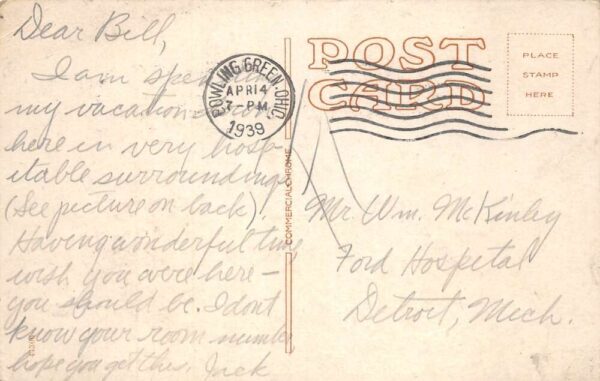 Dear Bill,
I am
my vacation
here in very hosp-
itable surroundings
(See picture on back).
Having wonderful time
wish you were here –
you should be. I dont
know your room number
hope you get this. Jack
BOWLING GREEN, OHIO
APR 14
7-PM
1939
COMMERCIALCHROME
POST
CARD
PLACE
STAMP
HERE
Mr. Wm. McKinley
Ford Hospital
Detroit, Mich.